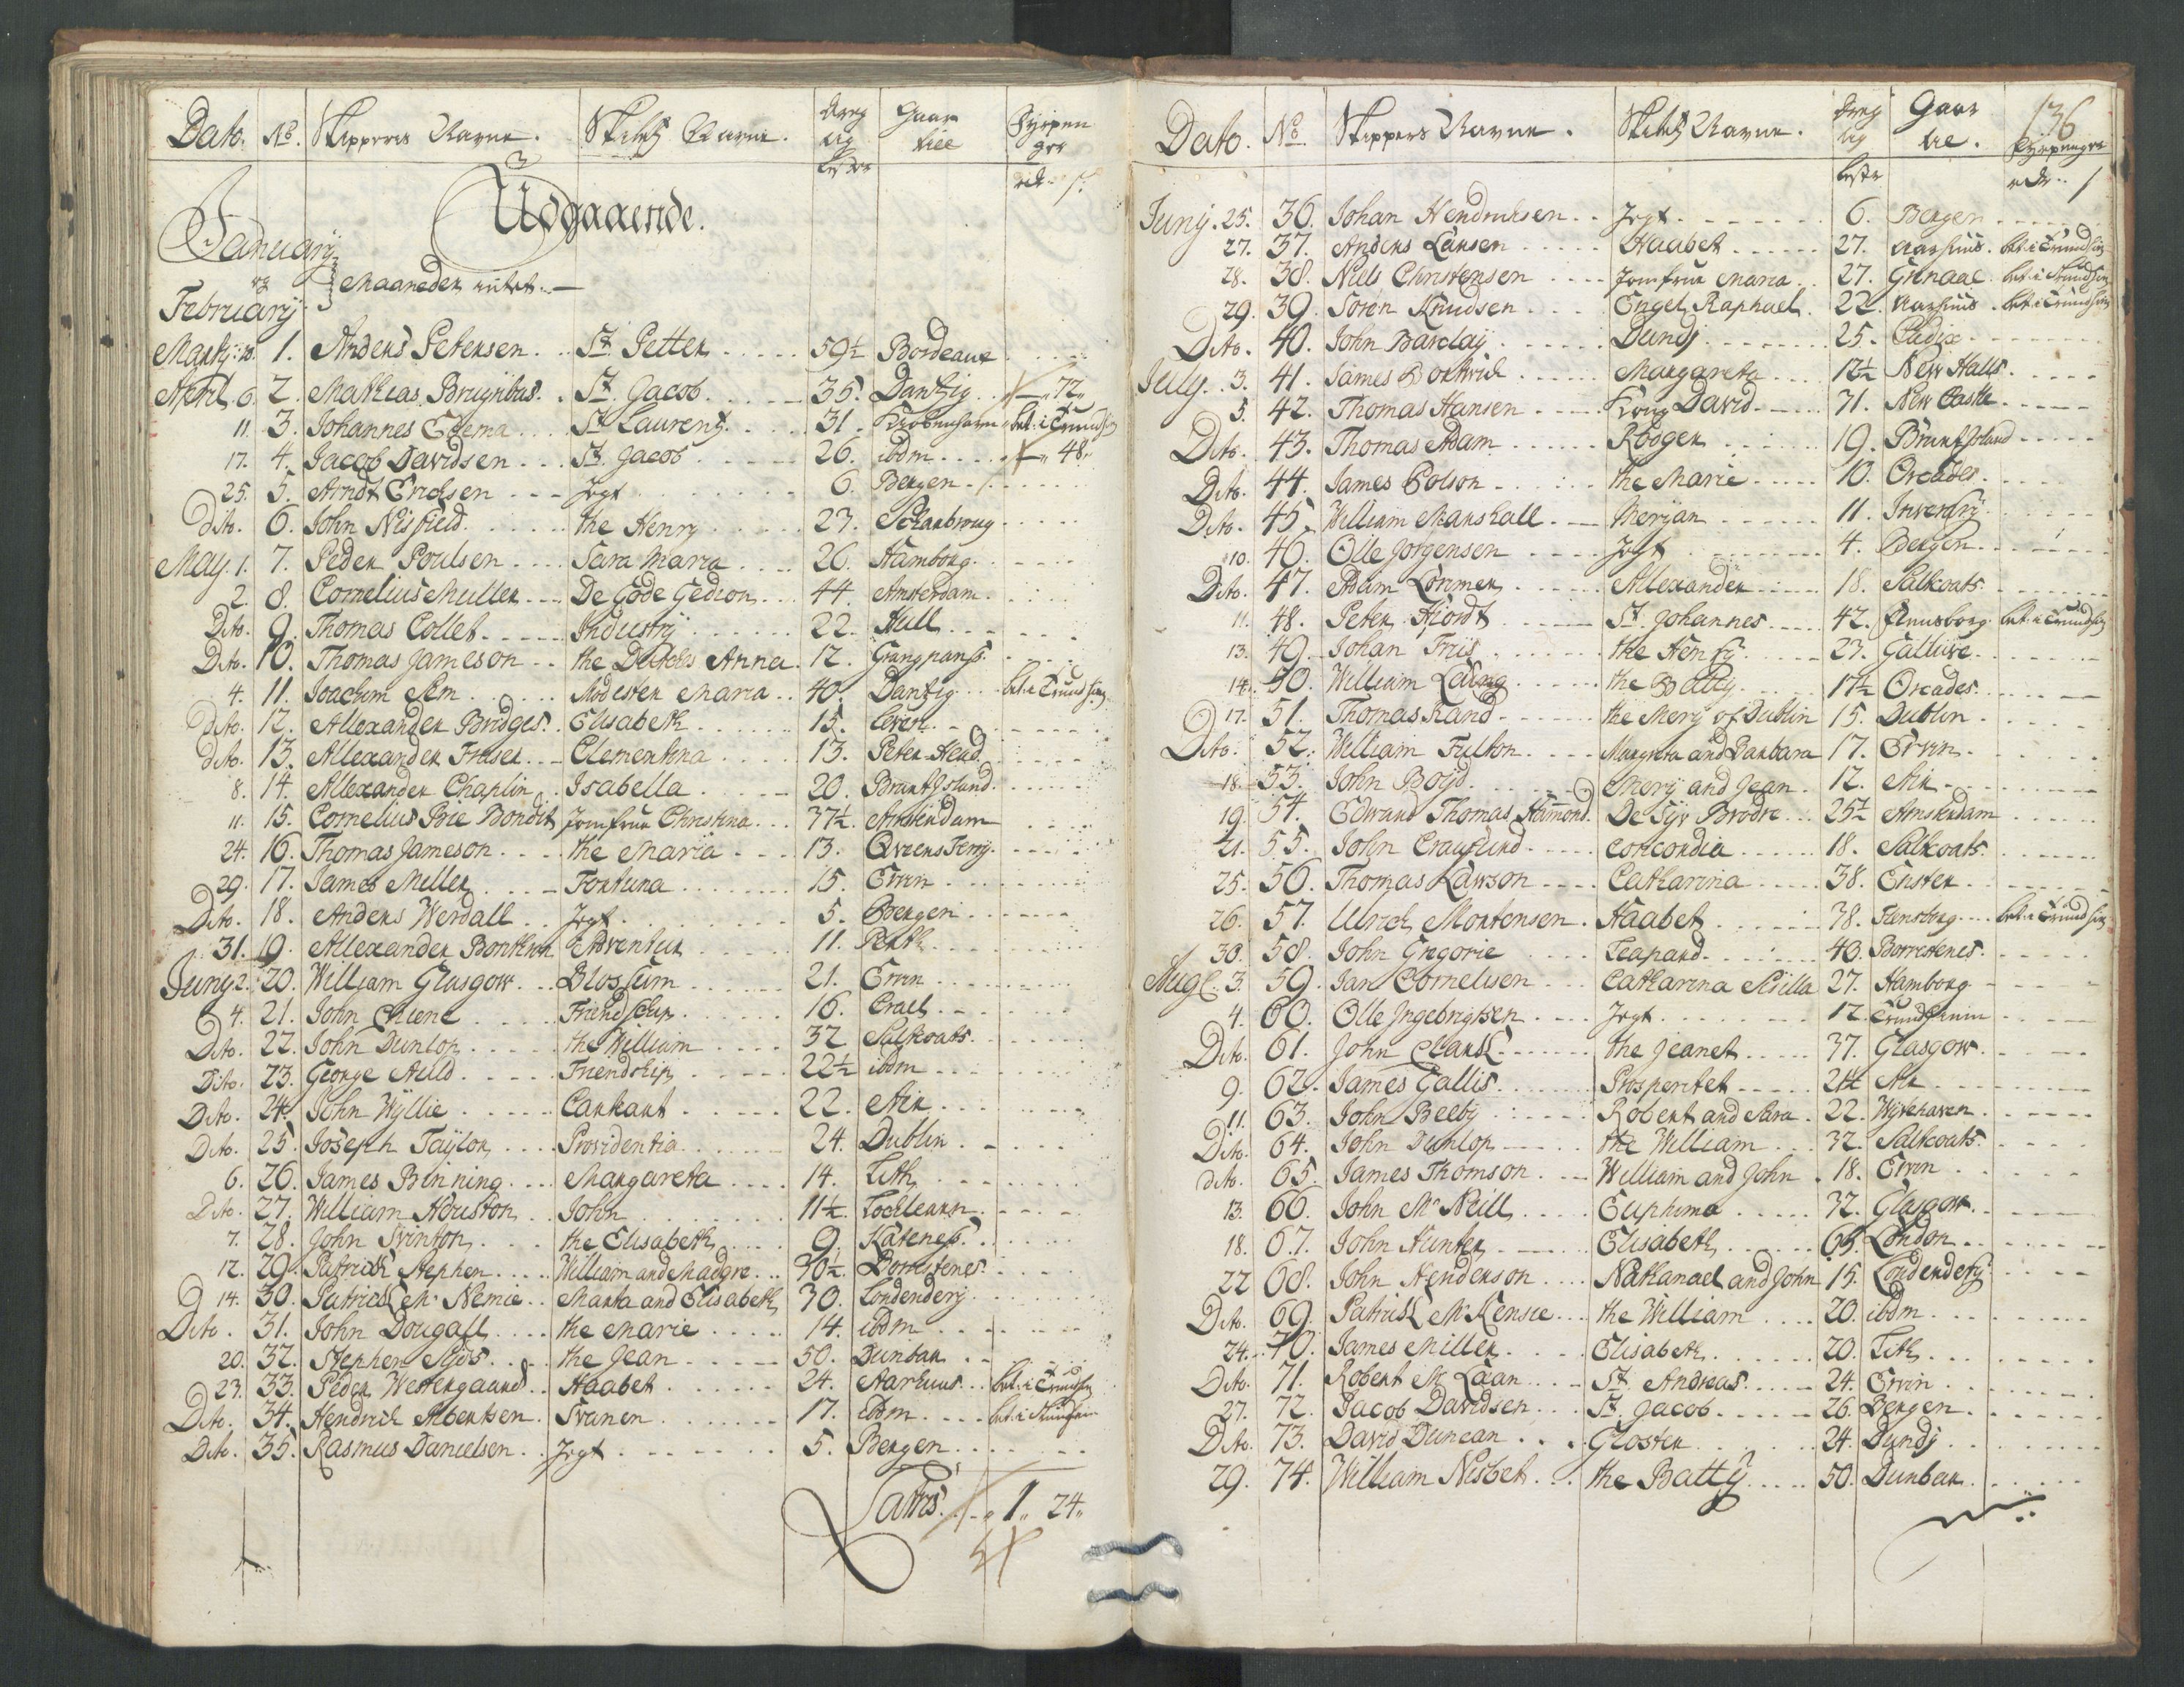 Dato. No. Skippers Navne. Skibs Navne. Dreg tig Lester Gaar till Fyrpen ger rdr. s.
Udgaaende.
January
og Maaneder intet.
February
Marty: 28. 1. Anders Petersen. St. Petter 59½ Bordeaux
April 6. 2. Mathias Bruynbus. St. Jacob. 35. Dantzig 72.
11. 3. Johannes Edema St. Laurentz 31. Kiøbenhavn bet. i Trundhin
17. 4. Jacob Davidsen St. Jacob 26. ibdm 48.
25. 5. Arndt Erichsen Jegt 6. Bergen
dito. 6. John Nisfield. the Henry 23.
May. 1. 7. Peder Poulsen Sara Maria 26. Hamborg.
2. 8. Cornelius Muller De Gode Gedion 44. Amsterdam.
Dito. 9. Thomas Collet Industry 22. Hull
Dito. 10. Thomas Jameson the Dutches Anna. 12. Grangpanss.
4. 11. Joachim Sem Modester Maria 40. Dantzig bet. i Trundhin
Dito. 12. Allexander Bridges. Elisabeth 15. Leven
dito. 13. Allexander Friser Clementina 13. Peter Head
8. 14. Allexander Chaplin Isabella 20. Bruntisland.
11. 15. Cornelius Brie Bondit Jomfrue Christina 37½ Amsterdam
24. 16. Thomas Jameson the Maria 13. Qveens Ferry.
29. 17. James Miller Fortuna 15. Ervin
Dito. 18. Anders Werdall Jegt. 5. Bergen
31. 19. Allexander Bonthron Adventur 11. Perth
Juny 2. 20. William Glasgow Blossum 21. Ervin
4. 21. John Chiene Friendschip 16. Crael
Dito. 22. John Dunlop the William 32 Salkoats.
Dito. 23. George Auld Friendship 22½ ibdm
Dito. 24. John Wyllie Cankart 22. Air
Dito. 25. Joseph Taylor Providentia 24. Dublin
6. 26. James Binning Margareta 14. Lith
Dito. 27. William Houston John 11½ Lochleann
7. 28. John Svinton the Elisabeth 9. Kateness.
12. 29. Patrick Stephen William and Madgre 30½ Borrestenes.
14. 30. Patrick Mc. Nemie Marta and Elisabeth 30. Londendery
Dito. 31. John Dougall the Marie 14. ibdm
20. 32. Stephen Syds the Jean 50. Dunbar
23. 33. Peder Westergaard Haabet 24. Aarhuus bet. i Trundhin
Dito. 34. Hendrick Albertsen. Svanen 17. ibdm bet. i Trundhin
Dito. 35. Rasmus Danielsen Jegt 5. Bergen
Latris. 1. 24.
136
Dato. No. Skippers Navne. Skibs Navne. Dreg tig Lester Gaar til. Fyrpenger rdr. s
Juny. 25. 36. Johan Hendrichsen Jegt 6. Bergen
27. 37. Anders Larsen Haabet 27. Aarhuus. bet. i Trundhin
28. 38. Niels Christensen Jomfrue Maria 27. Grenaae bet. i Trundhin
29. 39. Søren Knudsen Engel Raphael. 22. Aarhuus bet. i Trundhin
Dito. 40. John Barclay Dundj 25. Cadix
July. 3. 41. James Bortwick Margareta 12½ New Halls.
5. 42. Thomas Hansen Kong David 71. New Castle
Dito. 43. Thomas Adam Rodger 19. Bruntjsland
Dito. 44. James Colson the Marie 10. Orcades
Dito. 45. William Marshall Merjan 11. Inverary
10. 46. Olle Jørgensen Jegt 4. Bergen
Dito. 47. Adam Lorimer Allexander 18. Salkoats
11. 48. Peter Hiordt St. Johannes 42. Flensborg bet. i Trundhin
13. 49. Johan Friis the Henry 23. Gallwe
14. 50. William Laing the Batty 17½ Orcades
17. 51. Thomas Rand the Mery of Dublin 15. Dublin
Dito. 52. William Fulton Margreta and Barbara 17. Ervin
18. 53. John Boyd Mery and Jean 12. Air
19. 54. Edward Thomas Hammond. De Syv Brødre 25½ Amsterdam
21. 55. John Craufurd Concordia 18. Salkoats
25. 56. Thomas Lawson Catharina 38. Enster
26. 57. Ulrich Mortensen. Haabet 38. Flensborg bet. i Trundhin
30. 58. John Gregorie Leapard 40. Borrestenes
Aug. 3. 59. Jan Cornelisen Catharina Psilla 27. Hamborg
4. 60. Olle Ingebrigtsen Jegt 12. Trundhiem
Dito. 61. John Clark the Jeanet 37. Glasgow
9. 62. James Gallis Prosperitet 21½ Air
11. 63. John Beeby Robert and Sara 22. Wytehaven
Dito. 64. John Dunlop the William 32. Salkoats
dito. 65. James Thomson William and John 18. Ervin
13. 66. John Mc Neill Euphema 32. Glasgow
18. 67. John Hunter Elisabeth 65. London
22 68. John Henderson Nathanael and John 15. Londendery
Dito. 69. Patrick Mc Kensie the William 20. ibdm
24. 70. James Miller Elisabeth 20. Lith
Dito. 71. Robert Mc Laan St. Andreas 24. Ervin
27. 72. Jacob Davidsen St. Jacob 26. Bergen
Dito. 73. David Duncan Gloster 24. Dundj
29. 74. William Nisbet the Batty 50. Dunbar